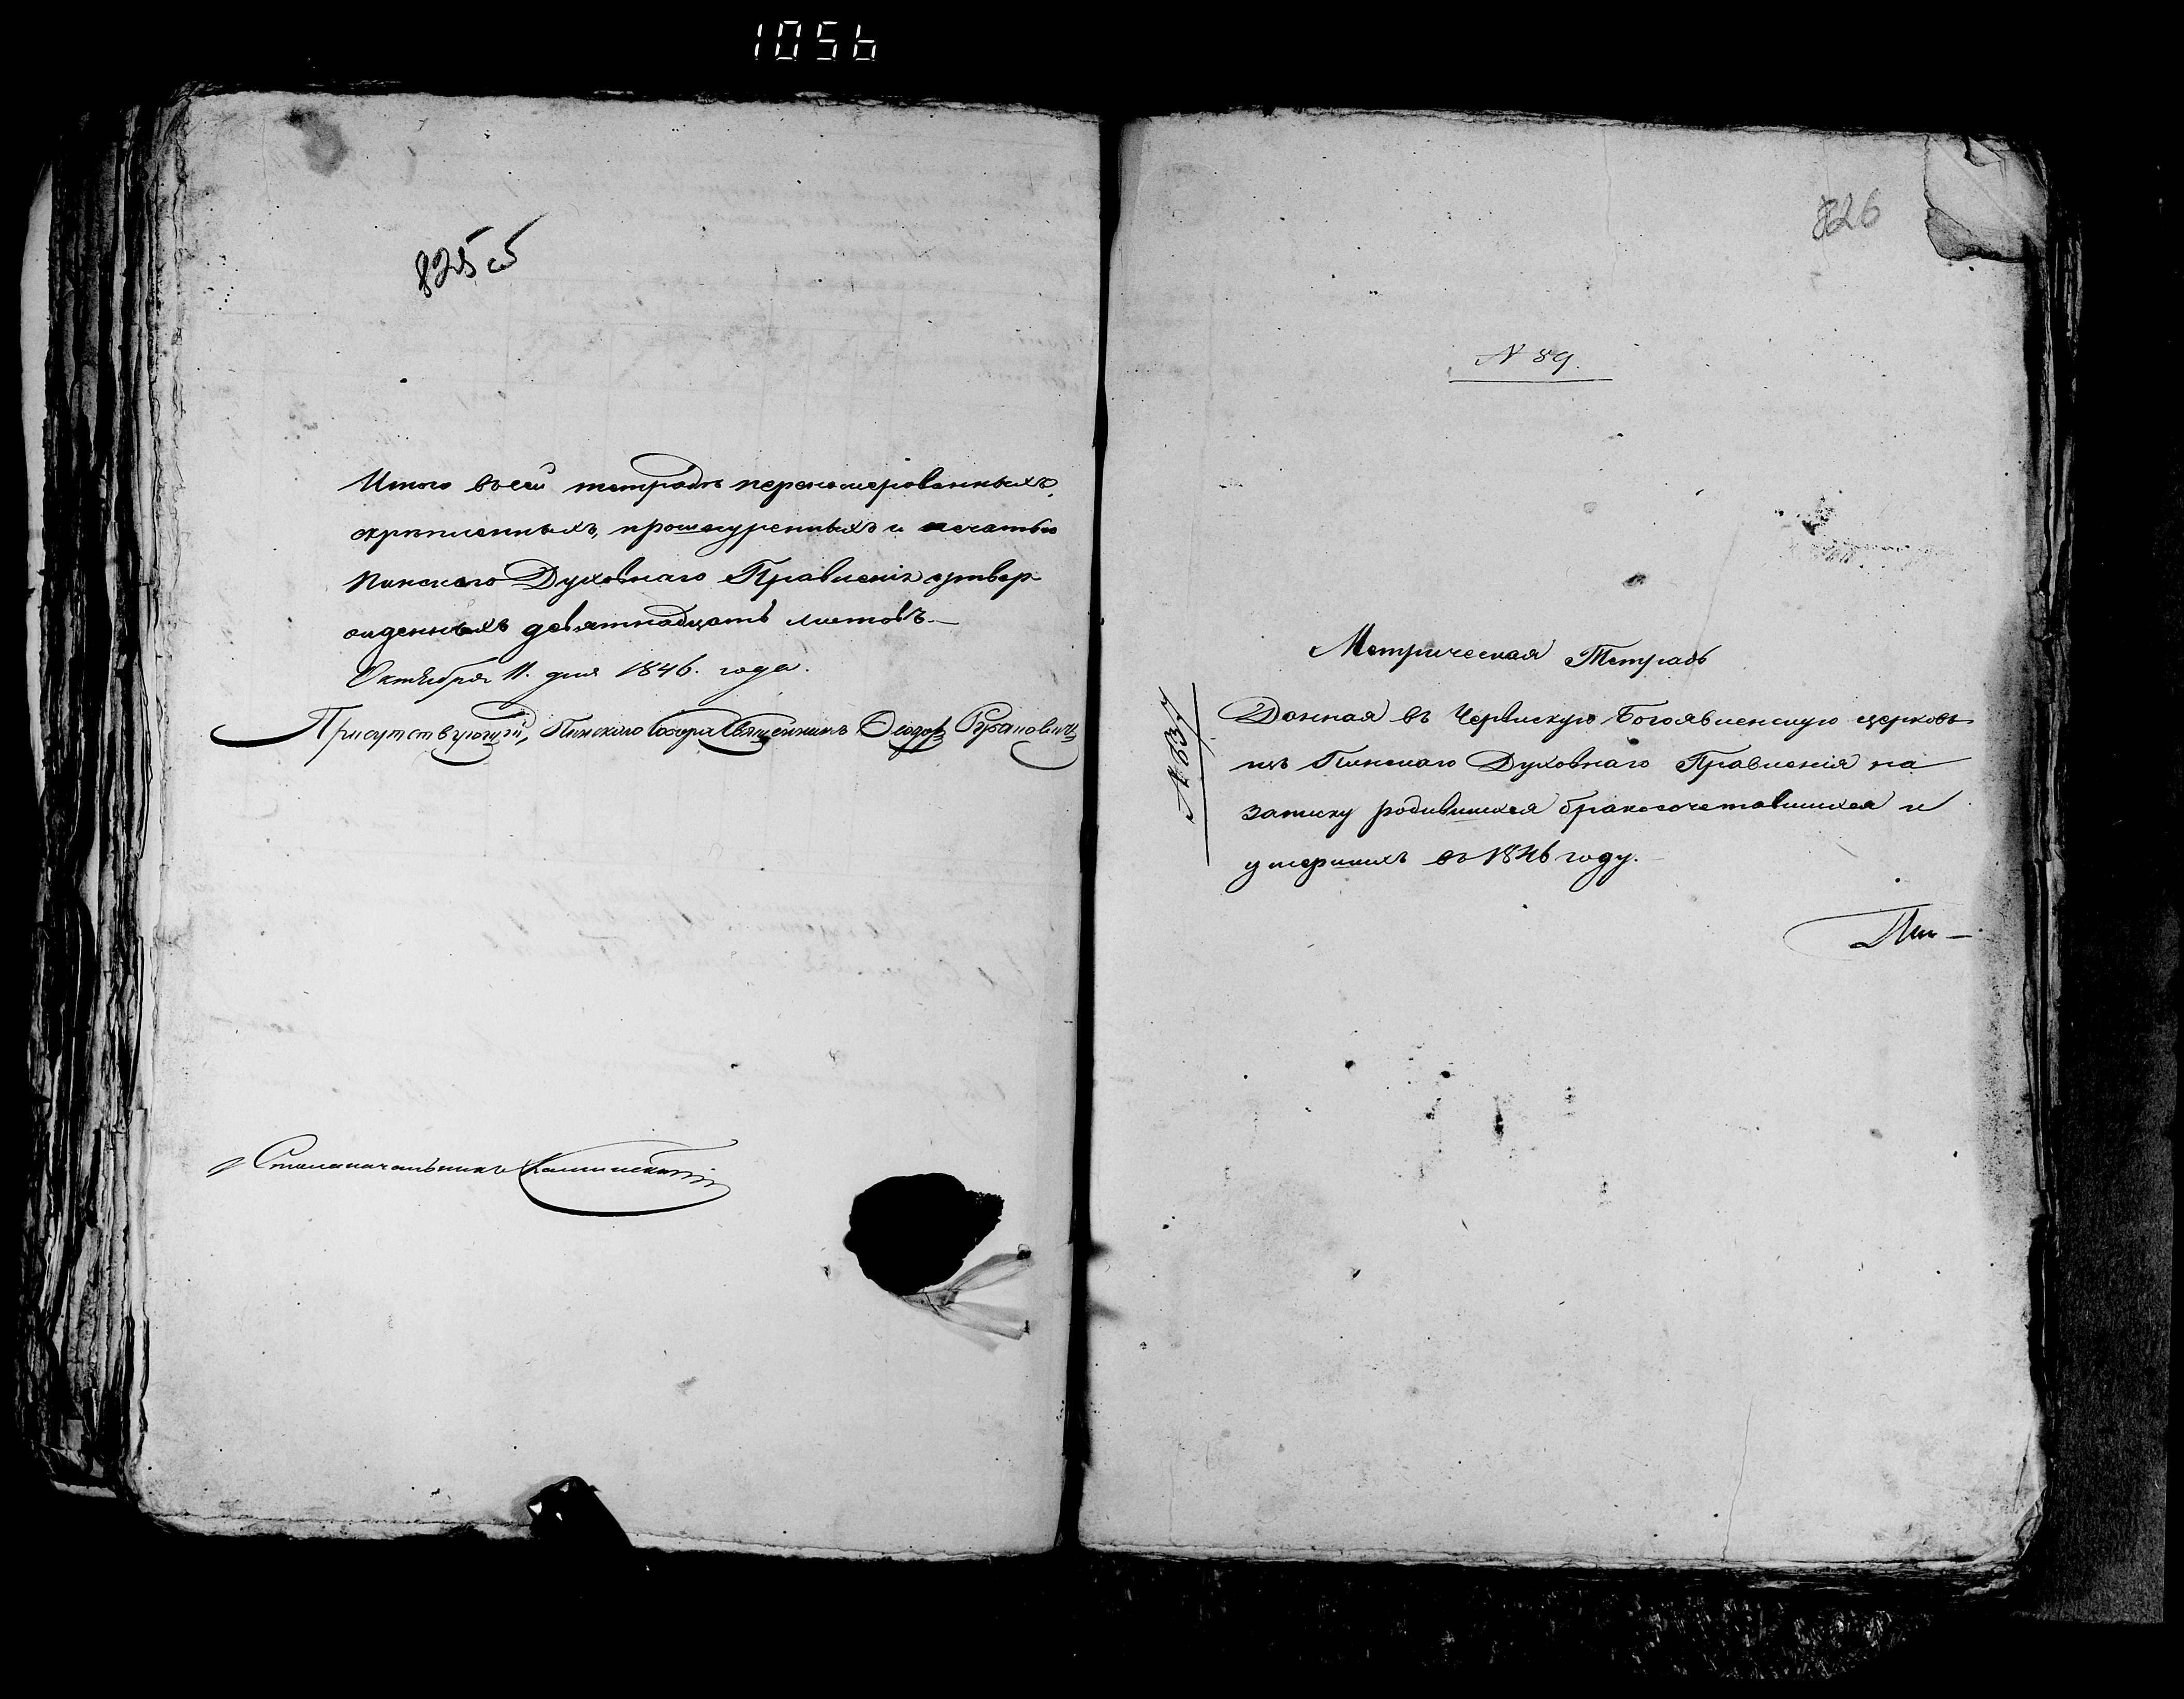 1056
825 об
Итого въ сей тетрадѣ перенумерованныхъ,
скрѣпленныхъ, прошнуренныхъ и печатью
Пинского Духовнаго Правленія утвер
жденныхъ девятнадцать листовъ.—
Октября 11. дня 1846. года.
Присутствующій, Пинскаго Собора Священникъ Ѳеодоръ
Столоначальникъ
826
N 89.
Метрическая Тетрадь
Данная въ Червискую Богоявленскую церковь
изъ Пинскаго Духовнаго Правленія на
записку родившихся бракосочетавшихся и
умершихъ въ 1846 году.